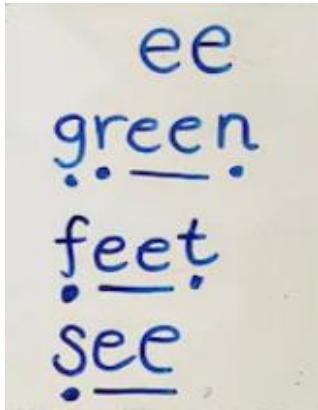 ee
green
feet
see